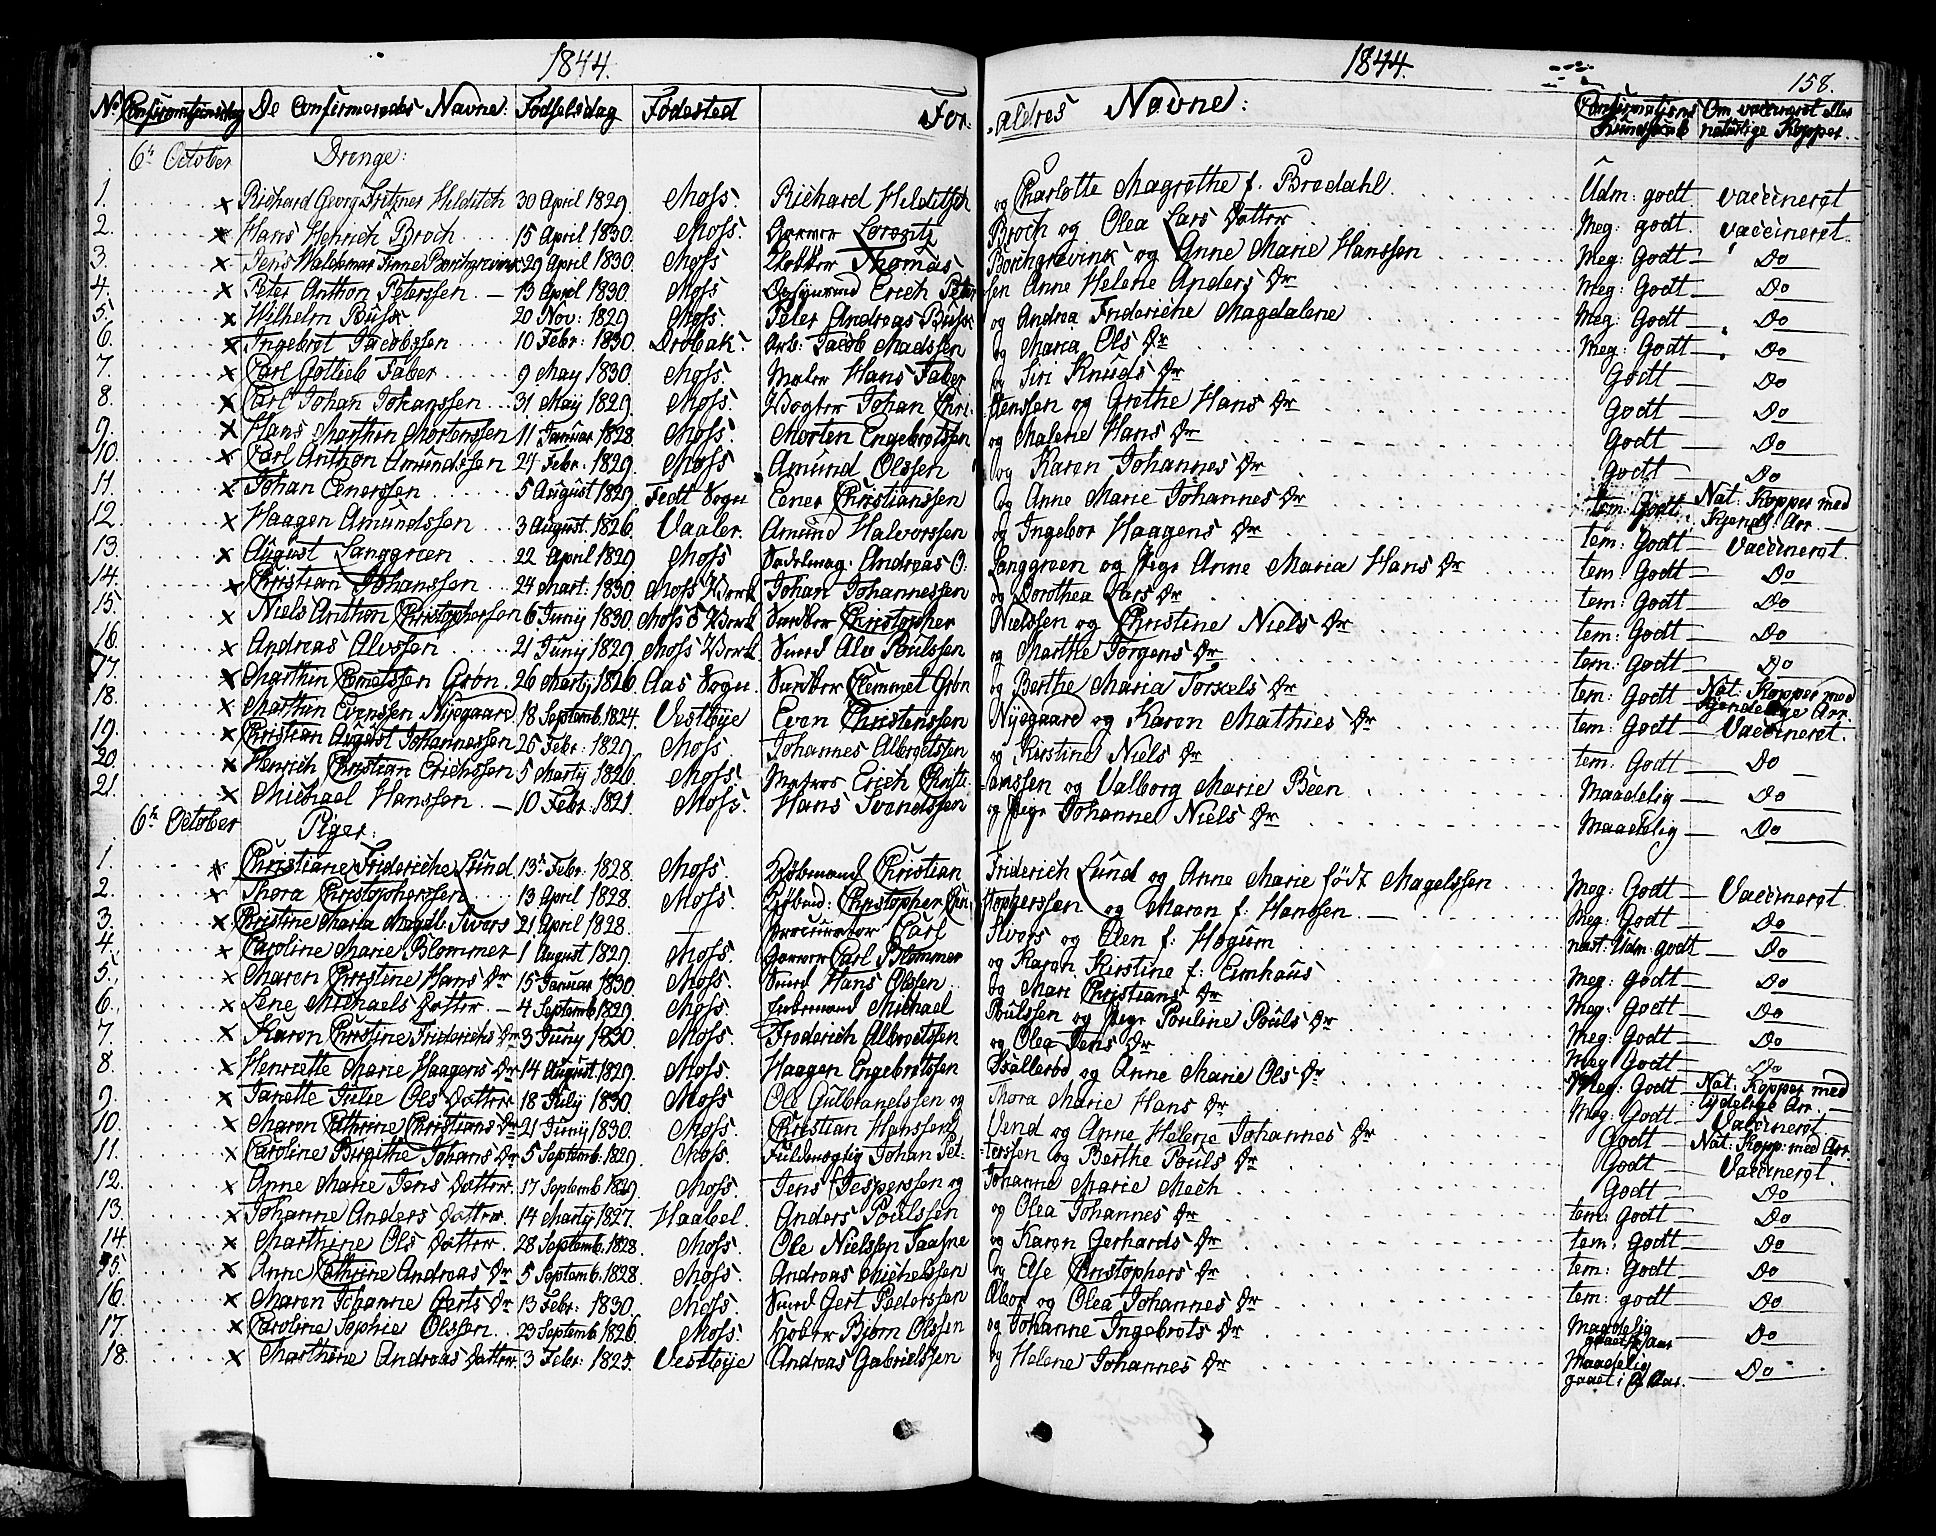 1844.
1844.
158.
No Confirmationsdag De Confirmeredes Navne: Fødselsdag Fødested For- ældres Navne: Confirmations Kundskab Om vaccineret eller naturlige Kopper.
6te October Drenge:
1. × Richard Georg Fritzner Hilditch 30 April 1829. Moss. Richard Hilditsch og Charlotte Magrethe f. Bredahl. Udm: godt vaccineret
2. × Hans Henrich Broch 15 April 1830. Moss. Garver Lorentz Broch og Olea Lars Datter Meg: godt. vaccineret.
3. × Jens Waldemar Finne Borchgrevink 29 April 1830. Moss Thomas Borchgrevink og Anne Marie Hanssen Meg: Godt — Do
4. × Peter Anthon Peterssen — 13 April 1830. Moss. Erich Peterssen Anne Helene Anders Dr Meg: Godt — Do
5. × Wilhelm Busk 20 Nov: 1829 Moss. Peter Andreas Busk og Andrea Frideriche Magdalene Meg: Godt — Do
6. × Ingebret Jacobssen 10 Febr: 1830. Drøbak. Arb: Jacob Madssen og Maria Ols Dr Meg: Godt — Do
7. × Carl Gottlieb Faber 9 May 1830. Moss. Maler Hans Faber og Siri Knuds Dr Godt — Do
8. × Carl Johan Johanssen 31 May 1829. Moss. Vægter Johan Chri- stenssen og Grethe Hans Dr Godt — Do
9. × Hans Marthin Mortenssen 11 Januar 1828. Moss. Morten Engebretssen og Malene Hans Dr Godt — Do
10. × Carl Anthon Amundssen 24 Febr: 1829. Moss. Amund Olssen og Karen Johannes Dr Godt — Do
11. × Johan Enerssen 5 August 1829. Fedt Sogn Ener Christianssen og Anne Marie Johannes Dr tem: Godt. Nat: Kopper med Kjendel: Arr.
12. × Haagen Amundssen 3 August. 1826. Vaaler. Amund Halvorssen og Ingebor Haagens Dr tem: Godt — Vaccineret
13. × August Langgreen 22 April 1829. Moss Sadelmag: Andreas O. Langgreen og Pige Anne Maria Hans Dr tem: Godt — Do
14. × Christian Johanssen 24 Mart: 1830. Moss Værk Johan Johannessen og Dorothea Lars Dr tem: Godt — Do
15. × Niels Anthon Christopherssen 6 Juny 1830. Moss Værk Christopher Nielssen og Christine Niels Dr tem: Godt — Do
16. × Andreas Alvssen 21 Juny 1829. Moss Værk. Smed Alv Poulssen og Marthe Jørgens Dr tem: Godt — Do
17. × Marthin Clemetssen Grøn. 26 Marty 1826. Aas Sogn Clemmet Grøn og Berthe Maria Torkels Dr tem: Godt Nat: Kopper med Kjendelige Arr.
18. × Marthin Evenssen Nyegaard 18 Septemb. 1824. Vestbye Even Christenssen Nyegaard og Karen Mathies Dr tem: Godt — Vaccineret.
19. × Christian August Johannessen 26 Febr: 1829. Moss. Johannes Albretssen og Kirstine Niels Dr tem: Godt — Do
20. × Henrich Christian Erichssen 5 Marty 1826. Moss. Matros Erich Christi- anssen og Valborg Marie Been Maadelig — Do
21. × Michael Hanssen. — 10 Febr: 1821. Moss. Hans Svendssen og Pige Johanne Niels Dr Maadelig — Do
6te October Piger:
1. × Christiane Frideriche Lund. 13 Febr: 1828. Moss. Kjøbmand Christian Friderich Lund og Anne Marie født Magelssen Meg: Godt — Vaccineret
2. × Thora Christopherssen 13 April 1828. Moss. Kjøbmd: Christopher Chri- stopherssen og Maren f: Hanssen. Meg: Godt — Do
3. × Christine Maria Magdl: Sivers 21 April 1828. — Procurator Carl Sivers og Elen f: Høgum næst: Udm: godt — Do
4. × Caroline Marie Blommer — 1 August 1829. Moss. Garver Carl Blommer og Karen Kirstine f: Emhaus Meg: Godt — Do
5. × Maren Christine Hans Dr 15 Januar 1830. Moss. Smed Hans Olssen og Mari Christians Dr Meg: Godt — Do
6. × Lene Michaels Datter — 4 Septemb 1829. Moss. Michael Poulssen og Pige Pouline Pouls Dr Meg: Godt — Do
7. × Karen Christine Friderichs Dr 3 Juny 1830. Moss. Frederich Albretssen og Olea Jens Dr Meg: Godt — Do
8. × Henriette Marie Haagens Dr 14 August 1829. Moss. Haagen Engebretssen og Anne Marie Ols Dr Meg: Godt Nat: Kopper med tydelige Arr.
9. × Janette Julie Ols Datter 18 July 1830. Moss Ole Gulbrandssen og Thora Marie Hans Dr Meg: Godt — Vaccineret
10. × Maren Cathrine Christians Dr 21 Juny 1830. Moss. Christian Hanssen Vend og Anne Helene Johannes Dr Godt — Nat: Kopp: med Arr.
11. × Caroline Birgithe Johans Dr 5 Septemb. 1829. Moss. Fuldmægtig Johan Pet- terssen og Berthe Pouls Dr Godt — Vaccineret.
12. × Anne Marie Jens Datter. 17 Septemb. 1829. Moss. Jens Jesperssen og Johanne Marie Mech Godt — Do
13. × Johanne Anders Datter 14 Marty 1827. Haabel. Anders Poulssen og Olea Johannes Dr tem: Godt — Do
14. × Marthine Ols Datter. 28 Septemb. 1828. Moss. Ole Nielssen Taasne og Karen Gerhards Dr tem: Godt — Do
15. × Anne Cathrine Andreas Dr 5 Septemb. 1828. Moss. Andreas Michelssen og Else Christophers Dr tem: Godt — Do
16. × Maren Johanne Gerts Dr 13 Febr: 1830. Moss. Smed Gert Peterssen og Olea Johannes Dr tem: godt — Do
17. × Caroline Sophie Olssen. 23 Septemb 1826. Moss. Bjørn Olssen og Johanne Ingebrets Dr Maadelig — Do
18. × Marthine Andreas Datter. 3 Febr: 1825. Vestbye Andreas Gabrielssen og Helene Johannes Dr Maadelig gaaet i 2 Aar. — Do